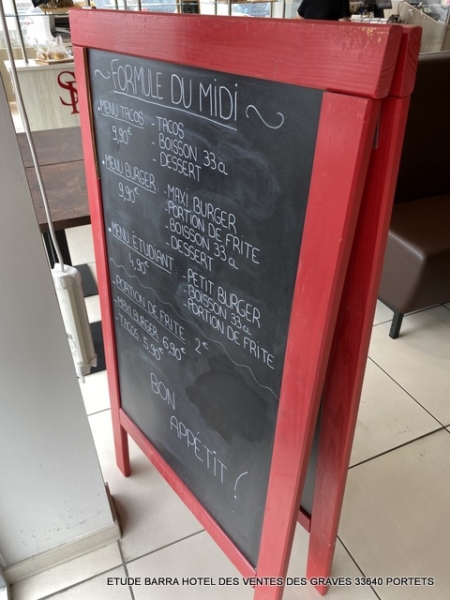 ~ FORMULE DU MIDI ~
• MENU TACOS - TACOS
9,90€ - BOISSON 33cl
- DESSERT
• MENU BURGER - MAXI BURGER
9,90€ - PORTION DE FRITE
- BOISSON 33cl
- DESSERT
• MENU ETUDIANT - PETIT BURGER
4,90€ - BOISSON 33cl
- PORTION DE FRITE
- PORTION DE FRITE 2€
- MAXI BURGER 6,90€
- TACOS 5,90€
BON
APPÉTIT !
ETUDE BARRA HOTEL DES VENTES DES GRAVES 33640 PORTETS